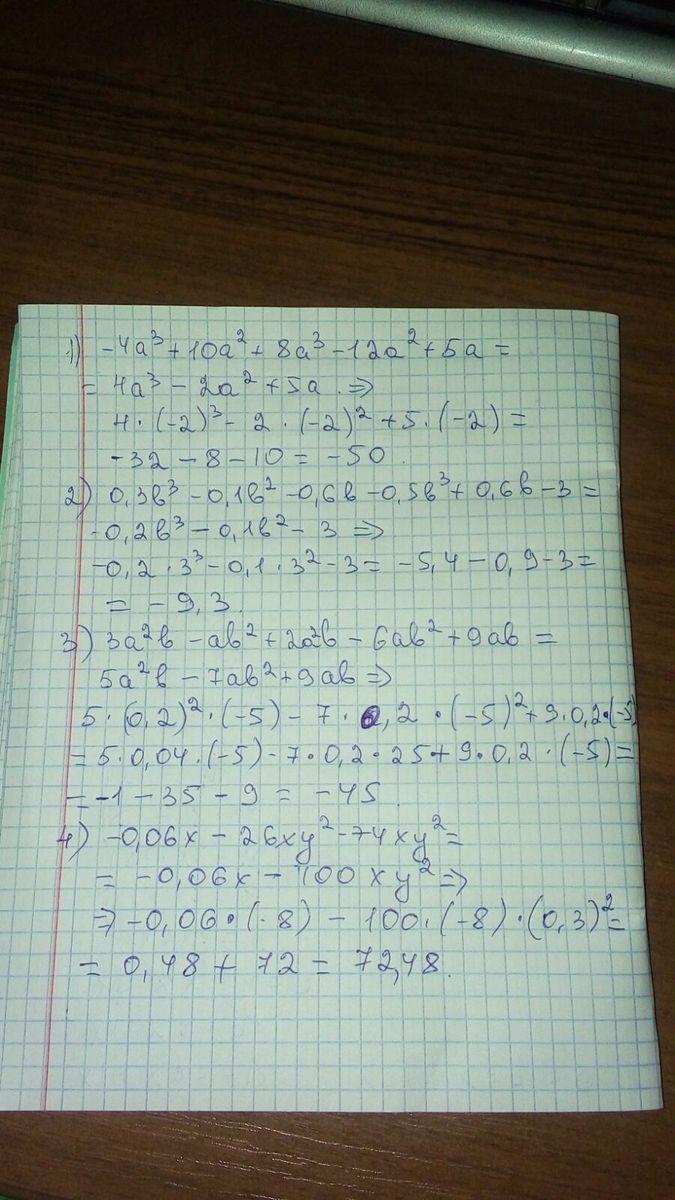 1) -4a³ + 10a² + 8a³ - 12a² + 5a =
= 4a³ - 2a² + 5a. ⇒
4 · (-2)³ - 2 · (-2)² + 5 · (-2) =
-32 - 8 - 10 = -50.
2) 0,3в³ - 0,1в² - 0,6в - 0,5в³ + 0,6в - 3 =
-0,2в³ - 0,1в² - 3 ⇒
-0,2 · 3³ - 0,1 · 3² - 3 = -5,4 - 0,9 - 3 =
= -9,3.
3) 3a²в - aв² + 2a²в - 6aв² + 9aв =
5a²в - 7aв² + 9aв ⇒
5 · (0,2)² · (-5) - 7 · 0,2 · (-5)² + 9 · 0,2 · (-5)
= 5 · 0,04 · (-5) - 7 · 0,2 · 25 + 9 · 0,2 · (-5) =
= -1 - 35 - 9 = -45.
4) -0,06x - 26xy² - 74xy² =
= -0,06x - 100xy² ⇒
⇒ -0,06 · (-8) - 100 · (-8) · (0,3)² =
= 0,48 + 72 = 72,48.